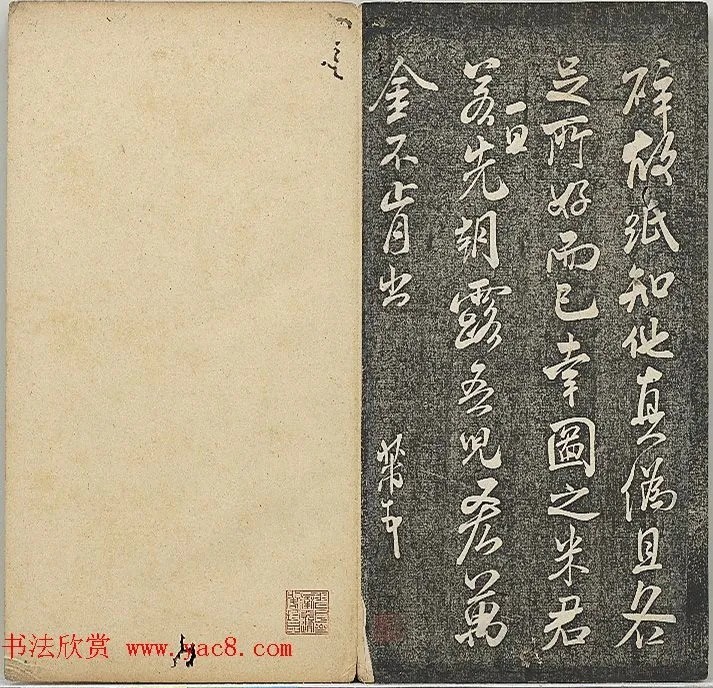 碎故紙知他真偽且各
足所好而已幸圖之米君
若一旦先朝露吾兒吝萬
金不肯出
芾
书法欣赏 www.yac8.com